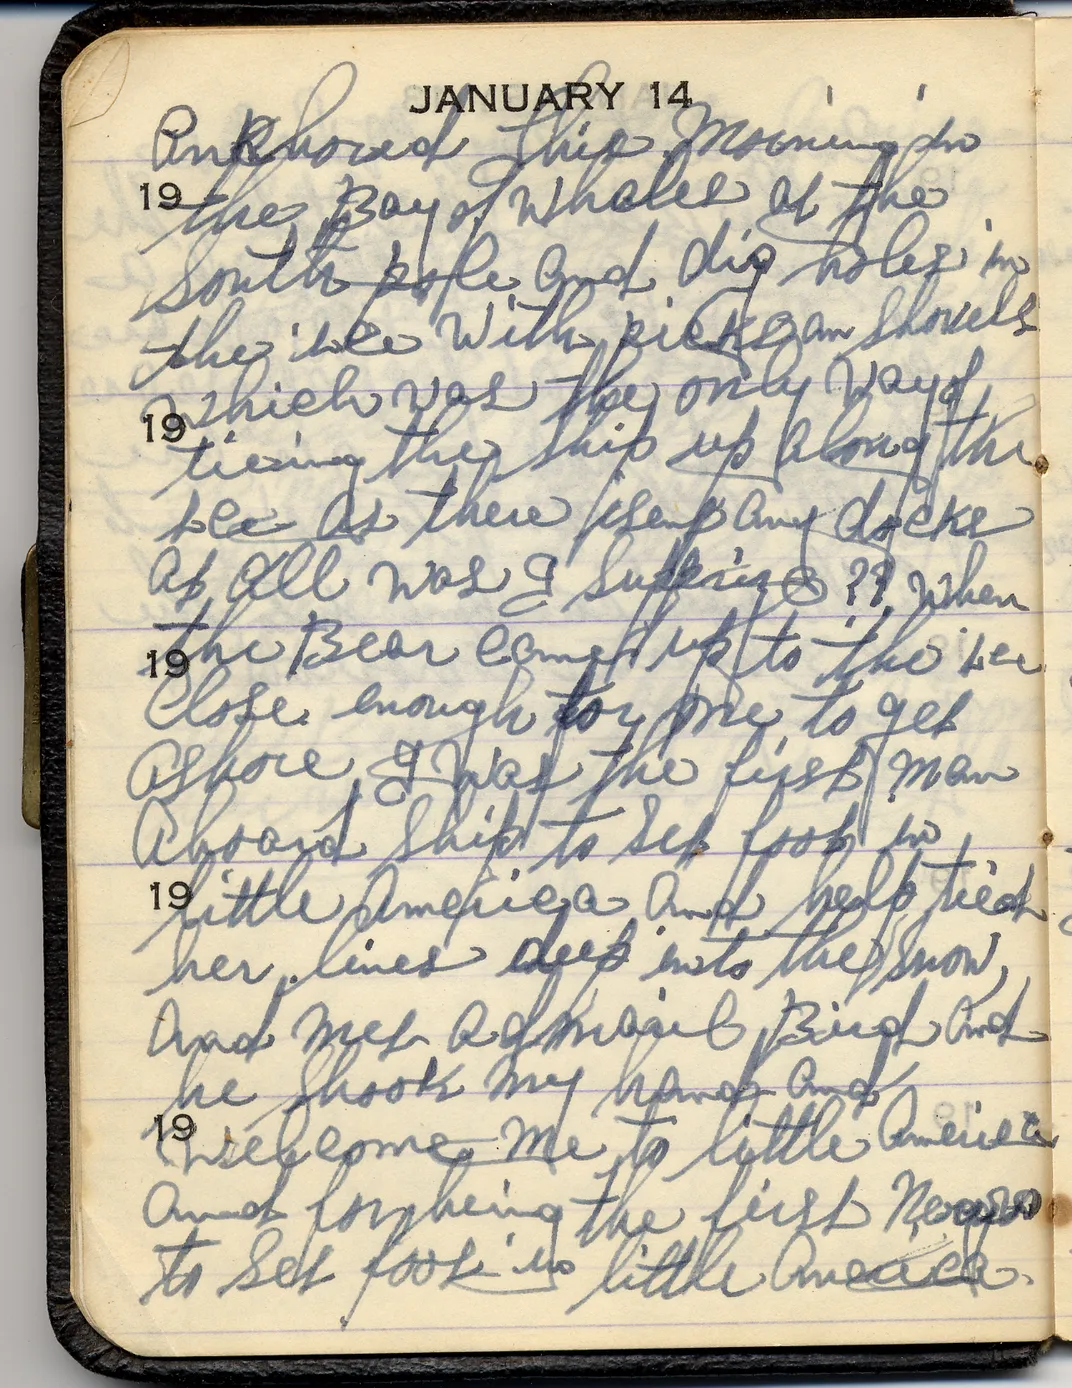 JANUARY 14
Ankhored this Morning in
19 the Bay of Whales at the
South pole and dig holes in
the ice With picks an Shovels
Which was the only Way of
19 tieing the ship up along the
Ice as there isent any docks
at all was I Suffering ?? When
19 the Bear Comed up to the ice
Close enough for me to get
ashore I Was the first man
Aboard Ship to Set foot in
19 little America and help tied
her lines deep into the Snow,
and met Admairl Bird and
he Shook my hand and
19 Wellcome Me to little America
and for being the first Negro
to Set foot in little America.